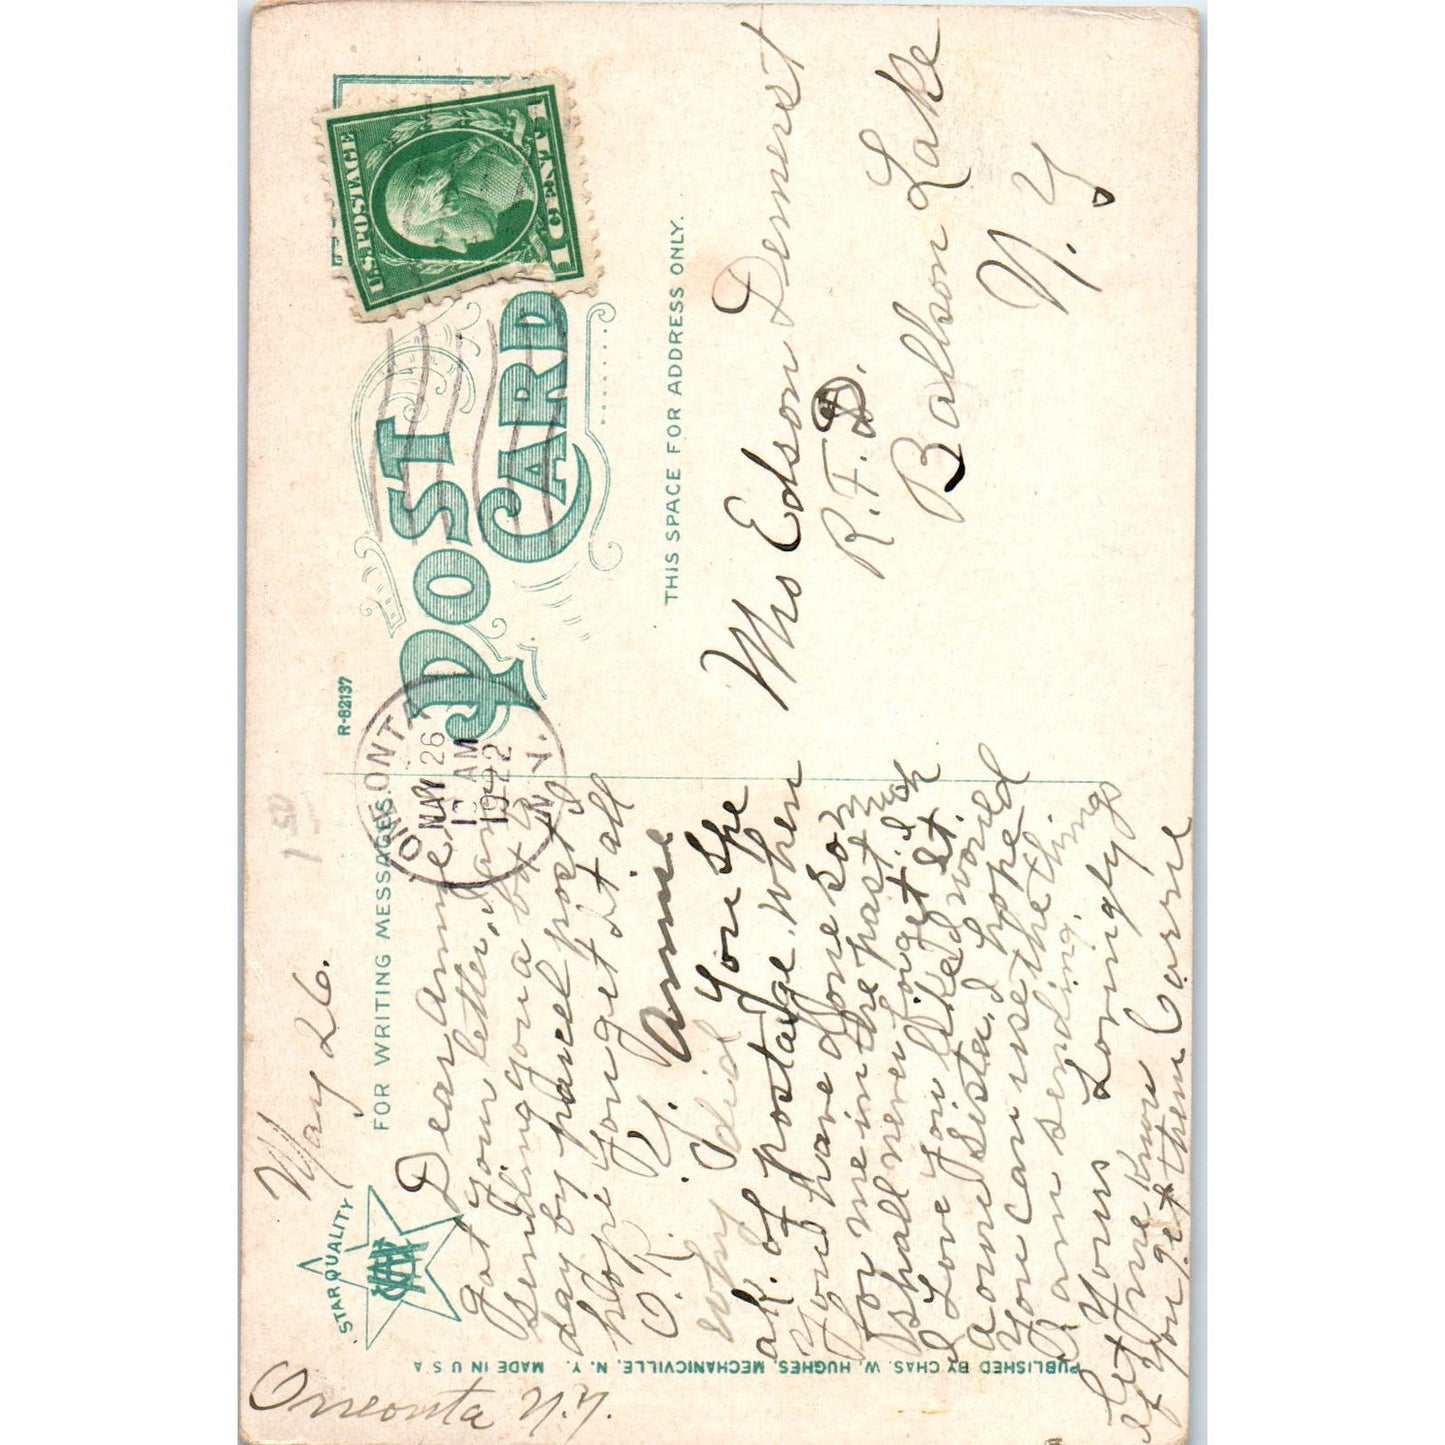 Oneonta N.Y.
May 26.
STAR QUALITY
R-82137
FOR WRITING MESSAGES.
POST
CARD
U.S. POSTAGE
1 CENT 1
ONEONTA
MAY 26
AM
1922
N.Y.
THIS SPACE FOR ADDRESS ONLY.
Dear Annie
Got your letter, I am
sending you a box to
day by parcel post I
hope you get it all
O.K.
Annie
Why did you Spe
ak of postage. When
You have done so m
for me in the past
I shall never forget it
I Love You liked
a own Sister, I hoped
You can use the things
I am sending.
Yours Lovingly
Carrie
Let me know
if you get them
Mrs Edson Demerest
R.F.D.
Ballson Lake
N.Y.
PUBLISHED BY CHAS. W. HUGHES, MECHANICVILLE, N. Y. MADE IN U S A